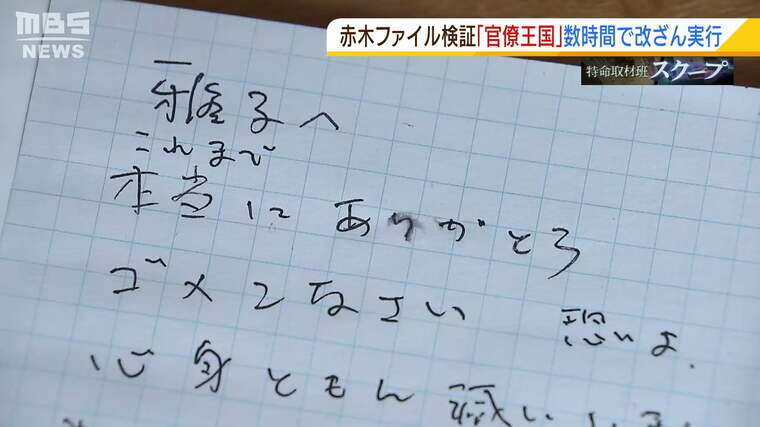 MBS
NEWS
赤木ファイル検証「官僚王国」数時間で改ざん実行
特命取材班 スクープ
雅子へ
これまで
本当に ありがとう
ゴメンなさい 恐いよ、
心身ともに